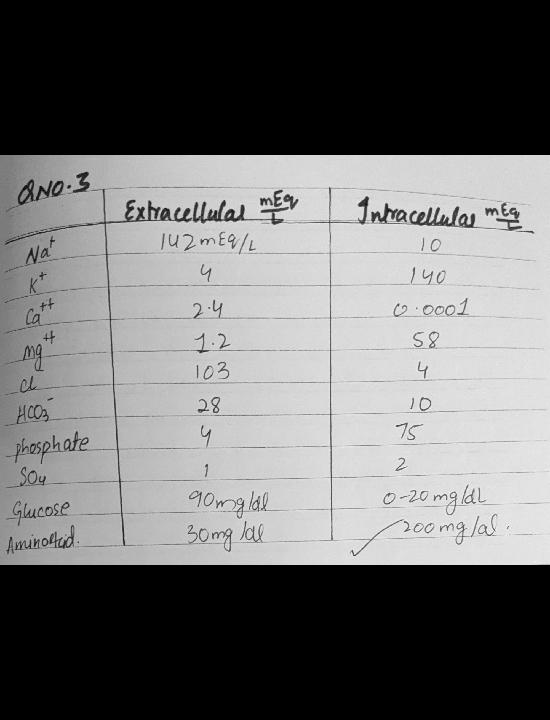 QNO.3
Extracellular mEq/L Intracellular mEq/L
Na+ 142mEq/L 10
K+ 4 140
Ca++ 2.4 0.0001
mg++ 1.2 58
Cl 103 4
HCO3- 28 10
phosphate 4 75
SO4 1 2
Glucose 90mg/dl 0-20mg/dL
AminoAcid. 30mg/dl 200mg/dl.